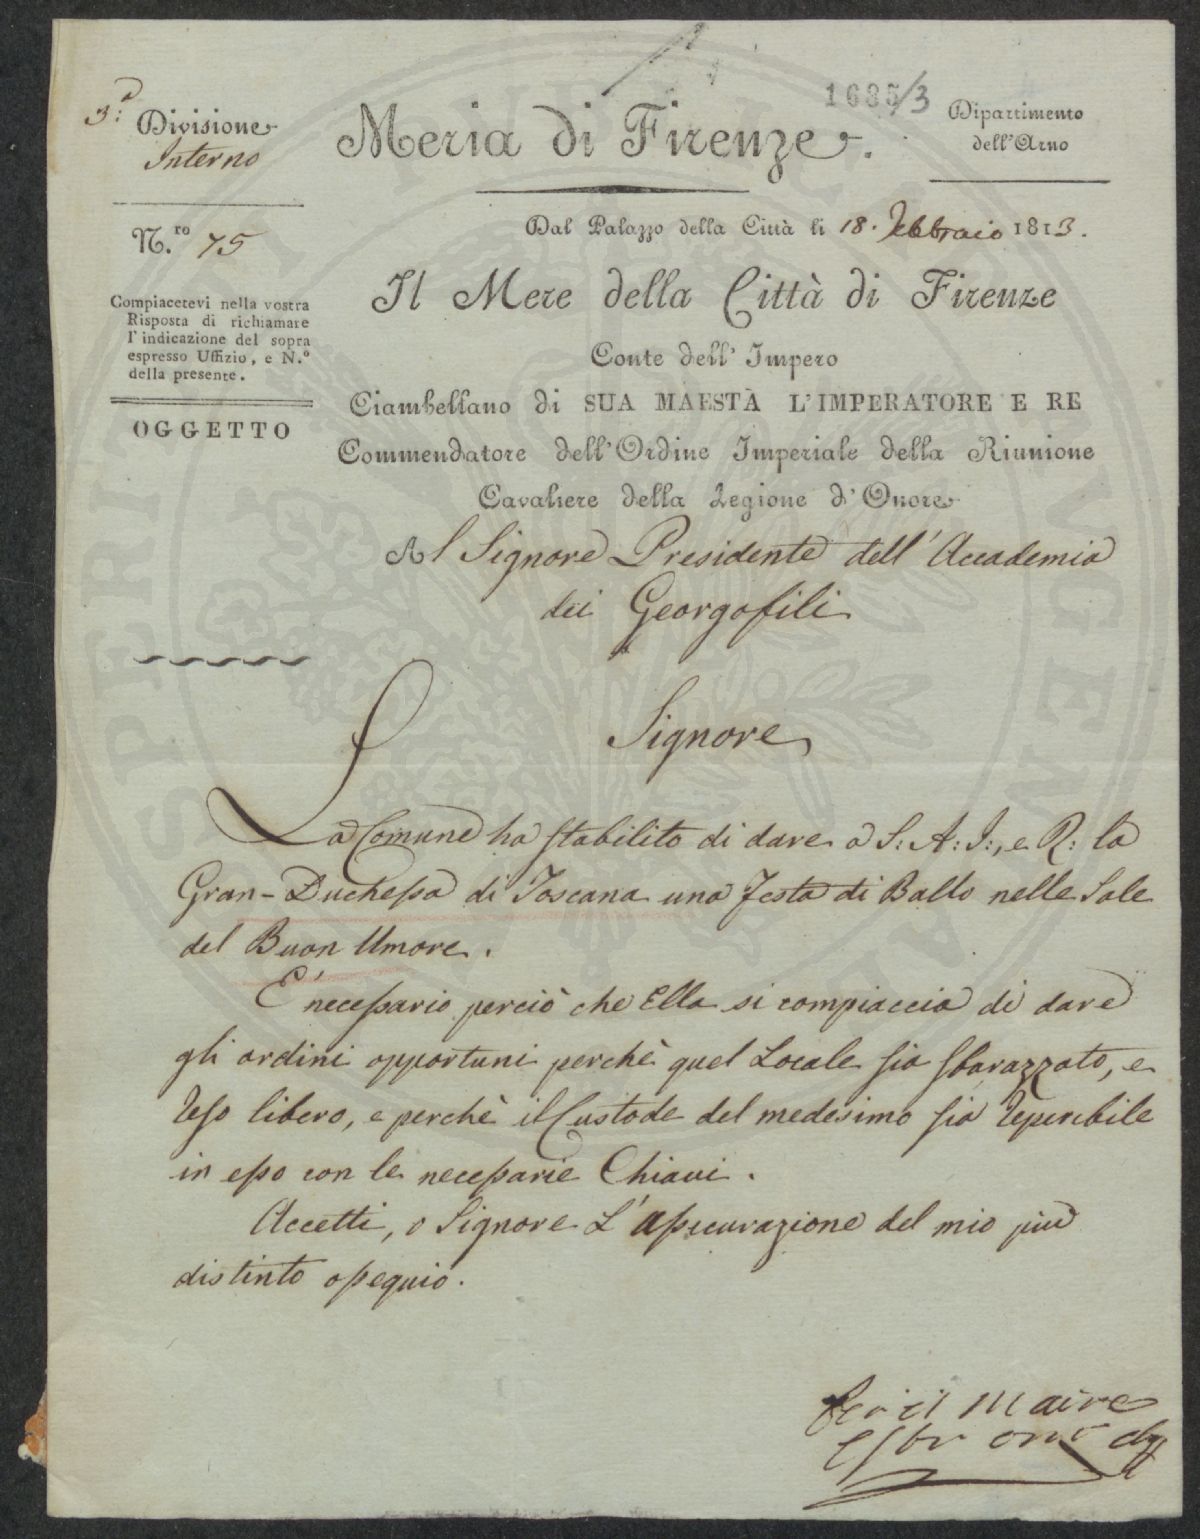 1685/3
3.a Divisione
Interno
Meria di Firenze.
Dipartimento
dell'Arno
N.ro 75
Dal Palazzo della Città li 18. Febbraio 1813.
Compiacetevi nella vostra
Risposta di richiamare
l'indicazione del sopra
espresso Uffizio, e N.°
della presente.
OGGETTO
Il Mere della Città di Firenze
Conte dell'Impero
Ciambellano di SUA MAESTÀ L'IMPERATORE E RE
Commendatore dell'Ordine Imperiale della Riunione
Cavaliere della Legione d'Onore
Al Signore Presidente dell'Accademia
dei Georgofili
Signore
La Comune ha stabilito di dare a S: A: I:, e R: la
Gran-Duchessa di Toscana una Festa di Ballo nelle Sale
del Buon Umore.
E' necessario perciò che Ella si compiaccia di dare
gli ordini opportuni perchè quel Locale sia sbarazzato, e
reso libero, e perchè il Custode del medesimo sia reperibile
in esso con le necessarie Chiavi.
Accetti, o Signore L'assicurazione del mio più
distinto ossequio.
Per il Maire